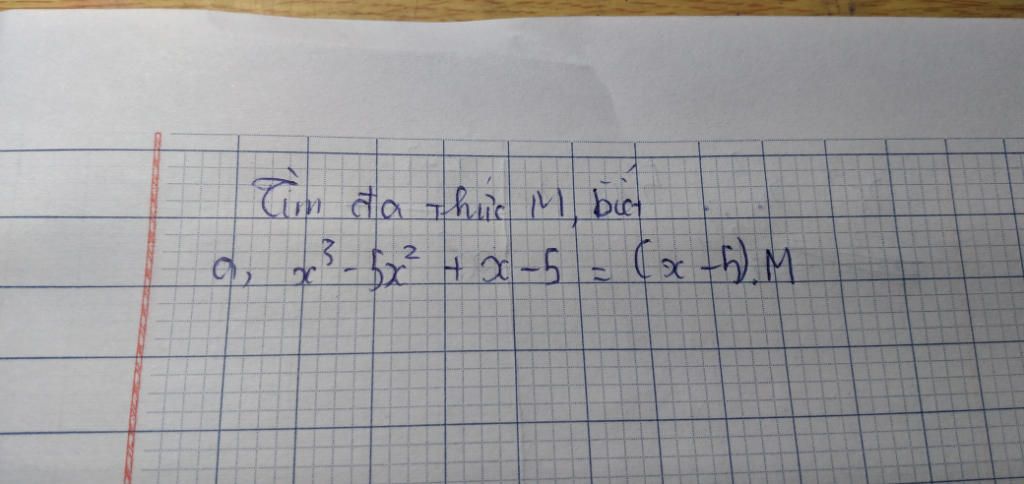 Tìm đa thức M, biết
a, x³ - 5x² + x - 5 = (x - 5).M